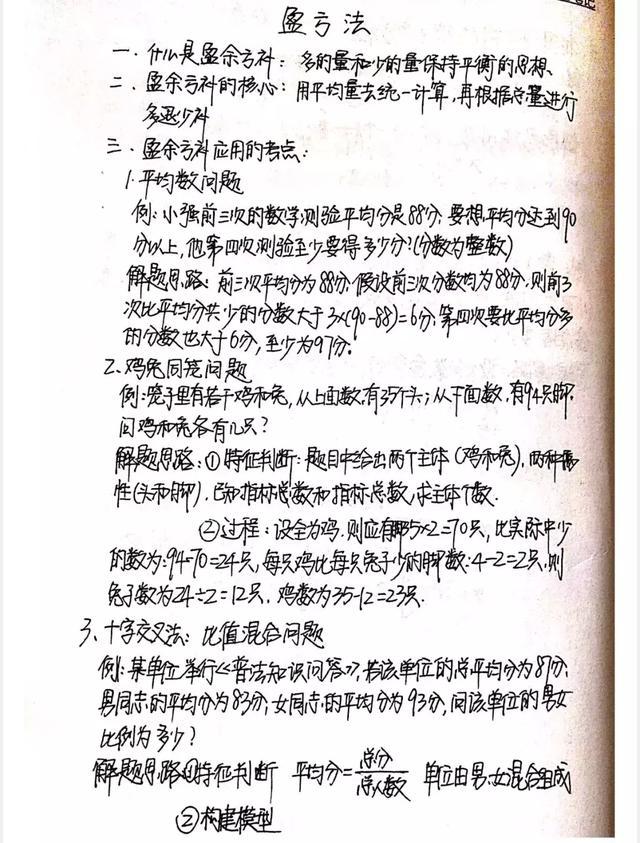 盈亏法
一. 什么是盈余亏补: 多的量和少的量保持平衡的思想.
二. 盈余亏补的核心: 用平均量去统一计算, 再根据总量进行
多退少补
三. 盈余亏补应用的考点:
1. 平均数问题
例: 小强前三次的数学测验平均分是88分, 要想平均分达到90
分以上, 他第四次测验至少要得多少分? (分数为整数)
解题思路: 前三次平均分为88分. 假设前三次分数均为88分, 则前3
次比平均分共少的分数大于3×(90-88)=6分; 第四次要比平均分多
的分数也大于6分, 至少为97分.
2. 鸡兔同笼问题
例: 笼子里有若干鸡和兔, 从上面数, 有35个头; 从下面数, 有94只脚.
问鸡和兔各有几只?
解题思路: ① 特征判断: 题目中给出两个主体 (鸡和兔), 两种属
性(头和脚). 已知指标总数和指标总数, 求主体个数.
②过程: 设全为鸡. 则应有35×2=70只, 比实际中少
的数为: 94-70=24只, 每只鸡比每只兔子少的脚数: 4-2=2只, 则
兔子数为24÷2=12只, 鸡数为35-12=23只.
3. 十字交叉法: 比值混合问题
例: 某单位举行《普法知识问答》, 若该单位的总平均分为87分;
男同志的平均分为83分; 女同志的平均分为93分, 问该单位的男女
比例为多少?
解题思路①特征判断 平均分=总分/总人数 单位由男、女混合组成
②构建模型